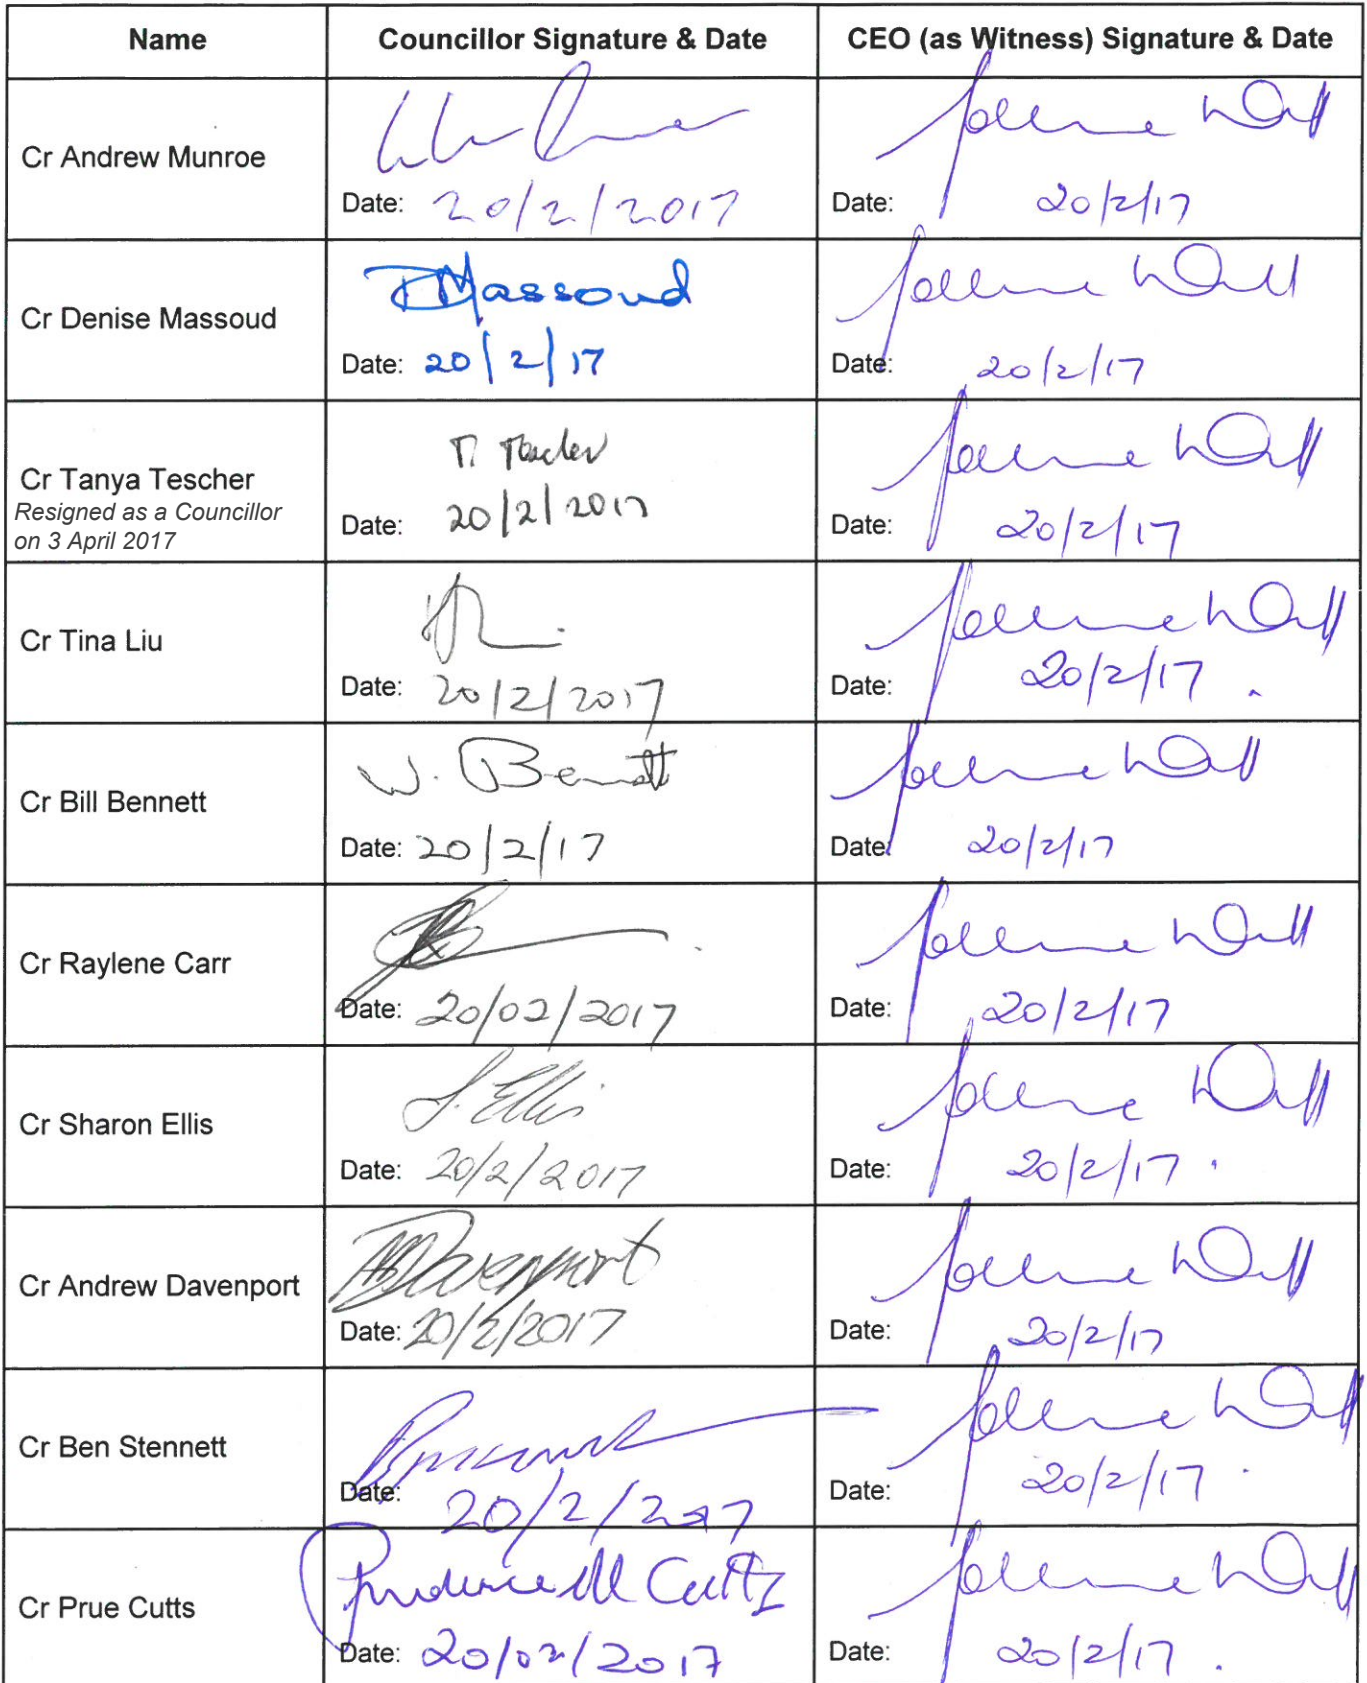 Name Councillor Signature & Date CEO (as Witness) Signature & Date
Cr Andrew Munroe
Date: 20/2/2017 Date: 20/2/17
Cr Denise Massoud DMassoud
Date: 20/2/17 Date: 20/2/17
T. Tescher
Cr Tanya Tescher
Resigned as a Councillor
on 3 April 2017
Date: 20/2/2017 Date: 20/2/17
Cr Tina Liu
Date: 20/2/2017 Date: 20/2/17
W. Bennett
Cr Bill Bennett
Date: 20/2/17 Date: 20/2/17
Cr Raylene Carr
Date: 20/02/2017 Date: 20/2/17
S. Ellis
Cr Sharon Ellis
Date: 20/2/2017 Date: 20/2/17
Cr Andrew Davenport Davenport
Date: 20/2/2017 Date: 20/2/17
Cr Ben Stennett
Date: 20/2/2017 Date: 20/2/17
Cr Prue Cutts Prudence M Cutts
Date: 20/02/2017 Date: 20/2/17